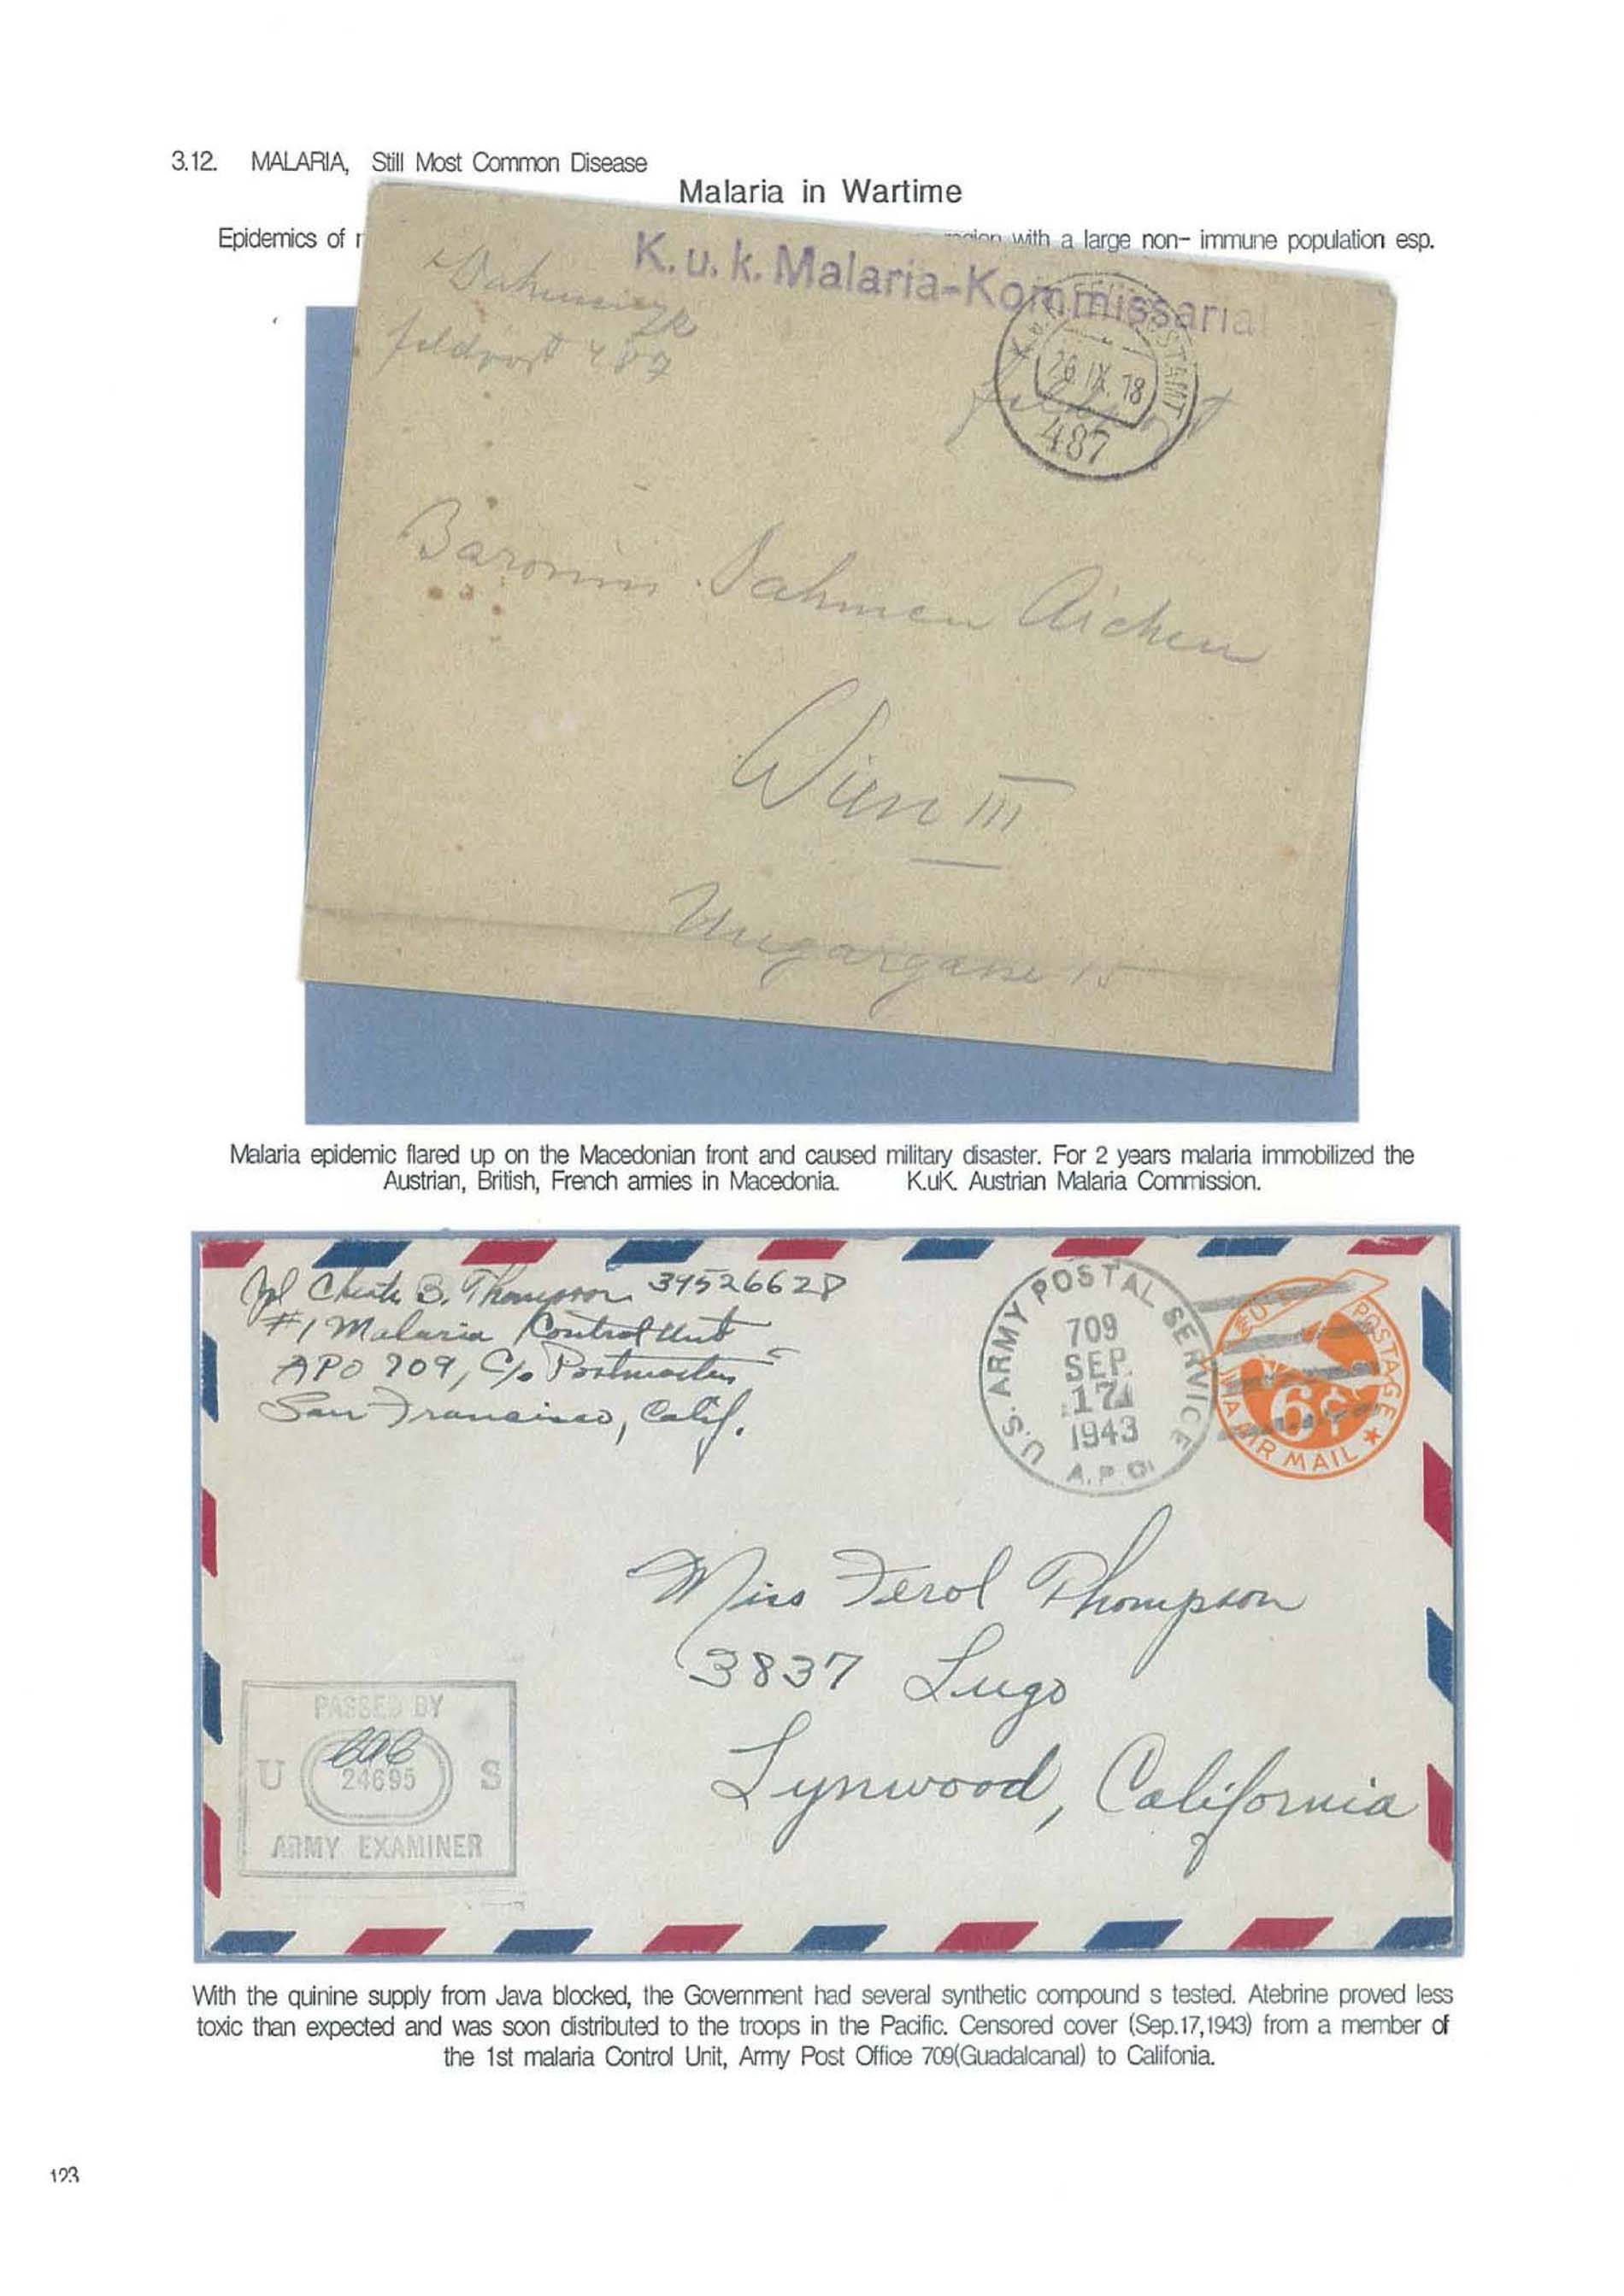 3.12. MALARIA, Still Most Common Disease
Malaria in Wartime
Epidemics of
with a large non- immune population esp.
K.u.k. Malaria-Kommissariat
feldpost 487
26 IX. 18
487
Baronin Dahmen Aichen
Wien III
Ungargasse 15
Malaria epidemic flared up on the Macedonian front and caused military disaster. For 2 years malaria immobilized the
Austrian, British, French armies in Macedonia. K.uK. Austrian Malaria Commission.
B. Thompson 39526628
#1 Malaria Control Unit
APO 709, C/o Postmaster
San Francisco, Calif.
U.S. ARMY POSTAL SERVICE
709
SEP
17
1943
A.P.O.
POSTAGE
6¢
VIA AIR MAIL
Miss Ferol Thompson
3837 Lugo
Lynwood, California
PASSED BY
U S
24695
ARMY EXAMINER
With the quinine supply from Java blocked, the Government had several synthetic compound s tested. Atebrine proved less
toxic than expected and was soon distributed to the troops in the Pacific. Censored cover (Sep.17,1943) from a member of
the 1st malaria Control Unit, Army Post Office 709(Guadalcanal) to Califonia.
123